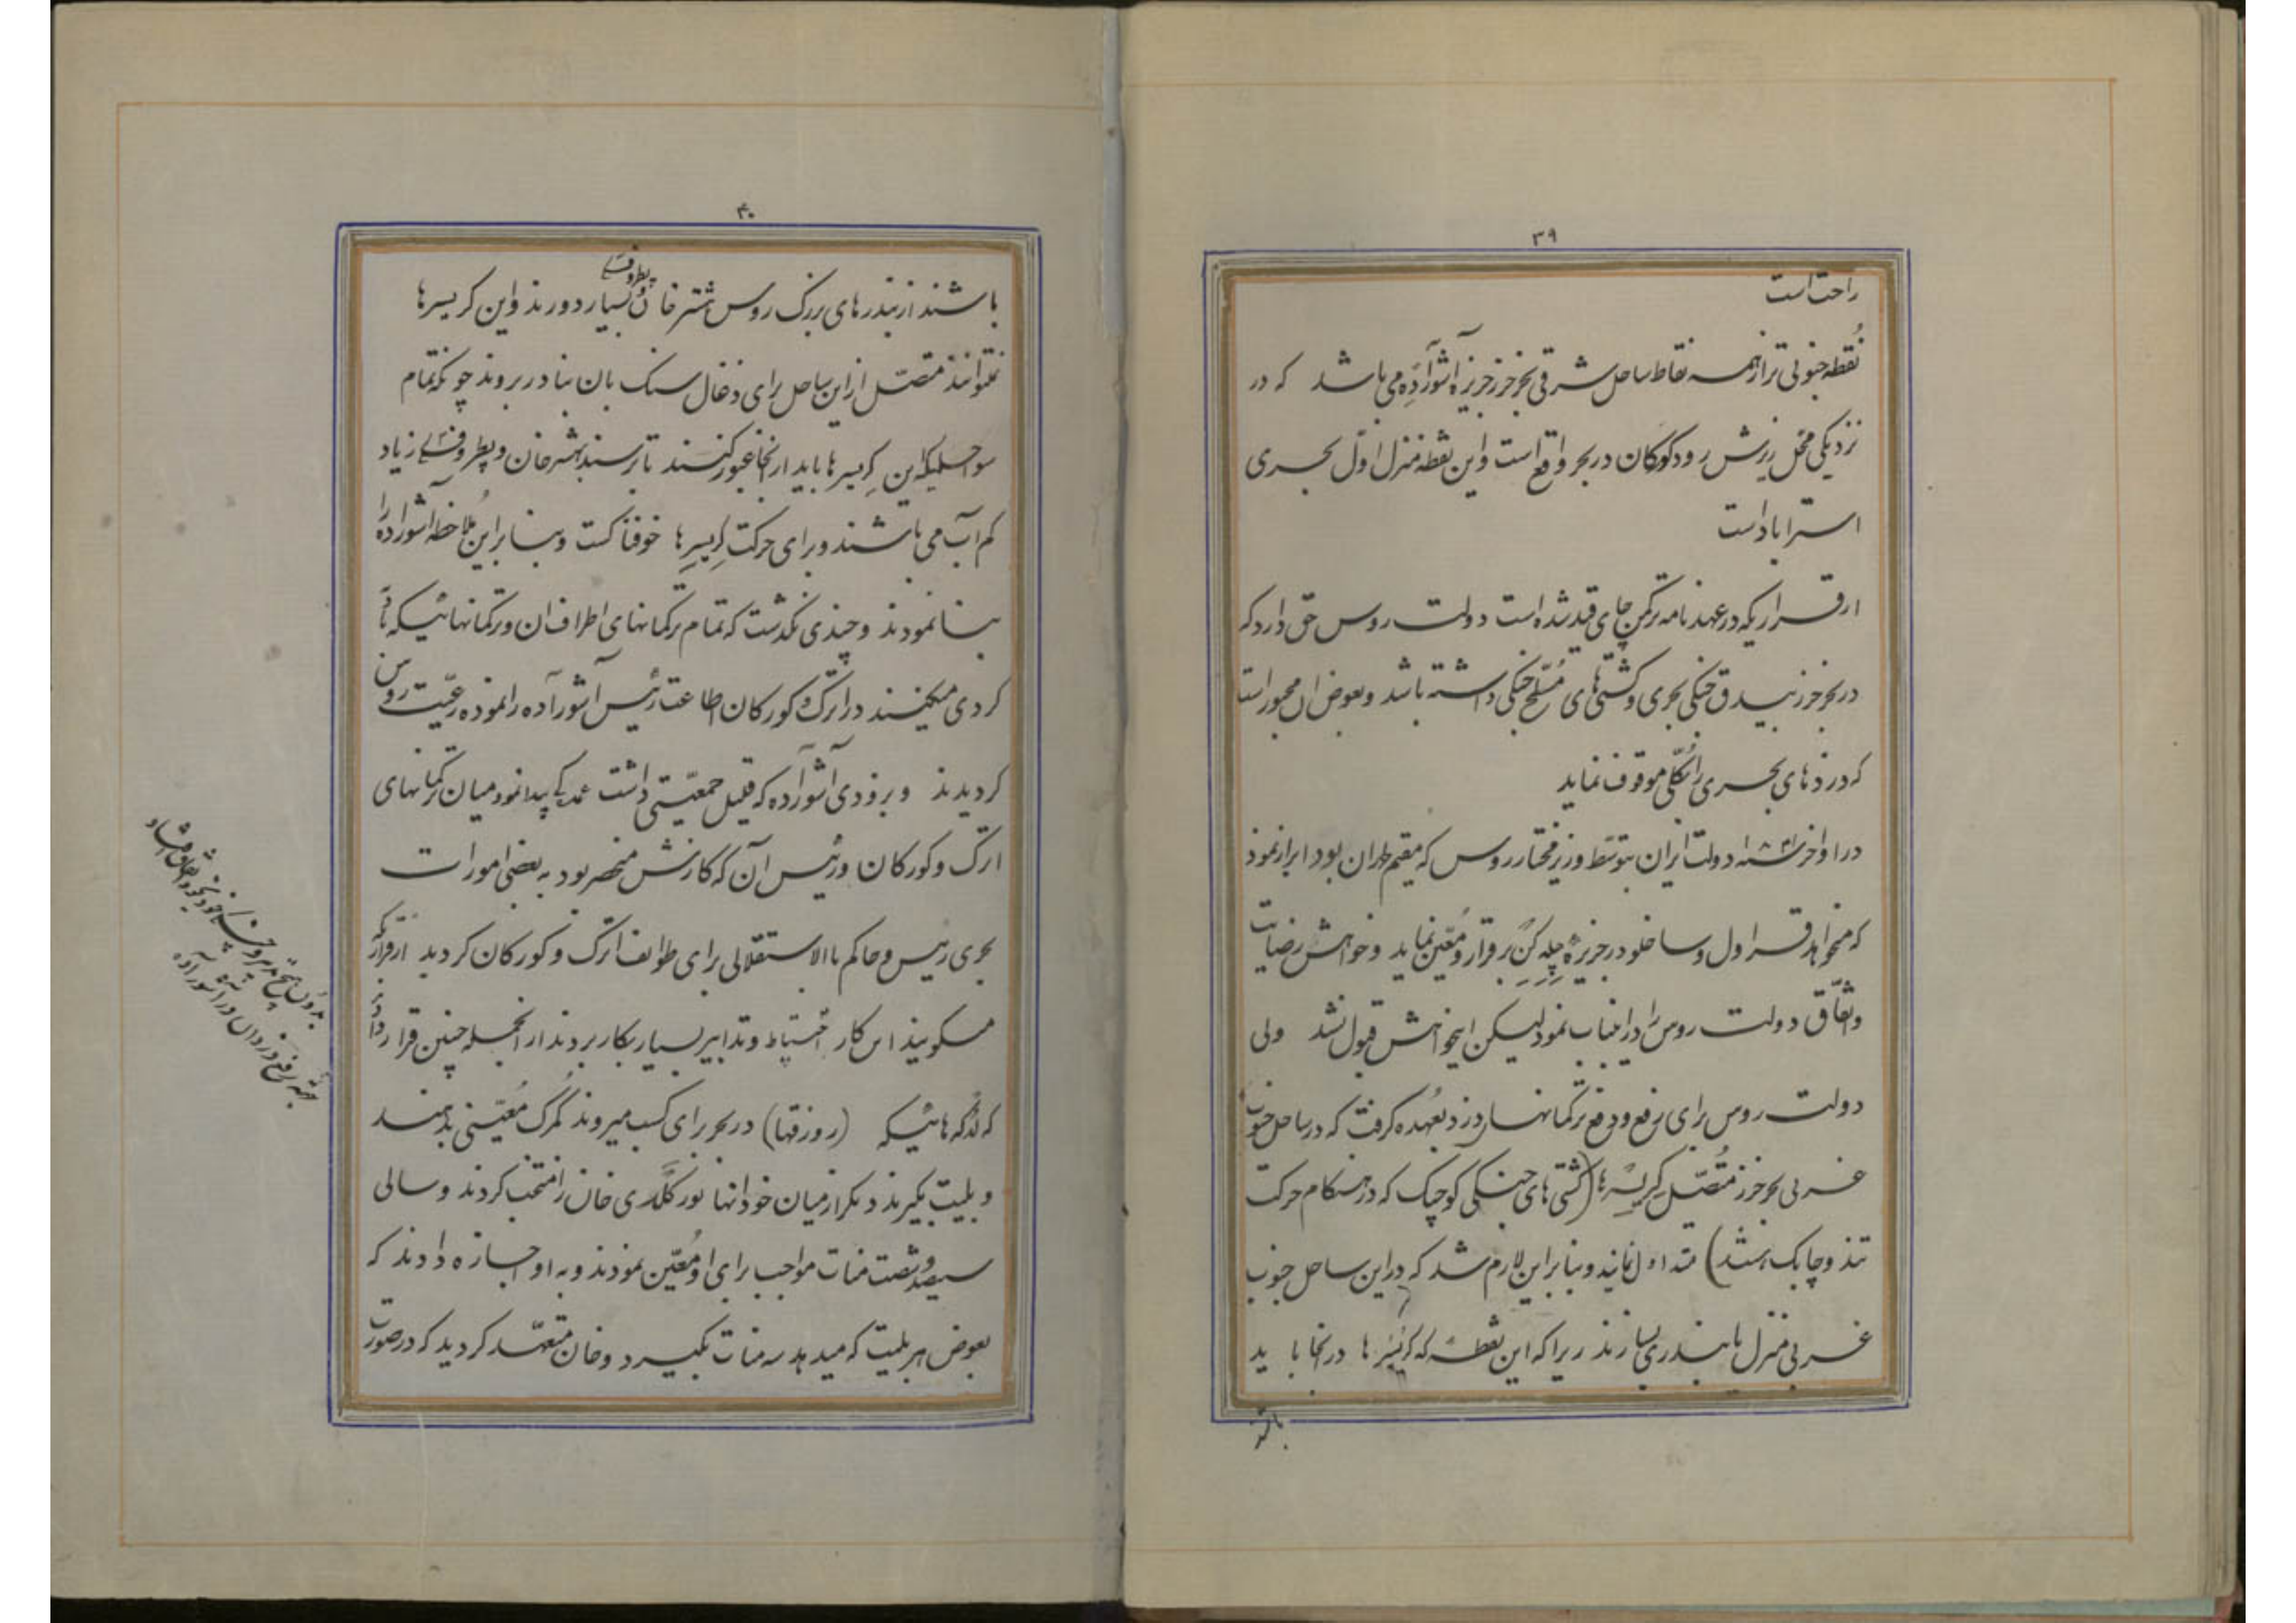 ۳۹
راحت است
نقطه جنوبی تر از همه نقاط ساحل شرقی بحر خزر جزیره آشورآده می باشد که در
نزدیکی محل ریزش رود کورکان در بحر واقع است و این نقطه منزل اول بحری
استراباد است
از قراریکه در عهدنامه ترکمن چای قید شده است دولت روس حق دارد که
در بحر خزر بیدق جنکی بحری و کشتی های مسلح جنکی داشته باشد و بعوض ان مجبور است
که دزدهای بحری را بکلی موقوف نماید
در اواخر دولت ایران بتوسط وزیر مختار روس که مقیم طهران بود ابراز نمود
که میخواهد قراول و ساخلو در جزیره چله کن برقرار و معین نماید و خواهش رضایت
و اتفاق دولت روس را در اینباب نمود لیکن اینخواهش قبول نشد ولی
دولت روس برای رفع و دفع ترکمانهای دزد بعهده کرفت که در ساحل جنوب
غربی بحر خزر متصل کریسرها (کشتی های جنکی کوچک که در هنکام حرکت
تند و چابک هستند) نمایند و بنابراین لازم شد که در این ساحل جنوب
غربی منزل یا بندری بسازند زیرا که این نقطه که کریسرها در انجا باید
باشند
۴۰
باشند از بندرهای بزرک روس هشترخان و پطروفسکی بسیار دورند و این کریسرها
نمتوانند متصل از این ساحل برای ذغال سنک بان بنادر بروند چونکه تمام
سواحلیکه این کریسرها باید از انجا عبور کنند تا برسند بهشترخان و پطروفسکی زیاد
کم آب می باشند و برای حرکت کریسرها خوفناکست و بنابراین ملاحظه آشوراده را
بنا نمودند و چندی نکذشت که تمام ترکمانهای اطراف ان و ترکمانهائیکه
کردی میکنند در اترک و کورکان اطاعت رئیس آشورآده را نموده رعیت روس
کردیدند و بزودی آشورآده که قلیل جمعیتی داشت پیدا نمود میان ترکمانهای
اترک و کورکان و رئیس آن که کارش منحصر بود به بعضی امورات
بحری رئیس و حاکم بالاستقلالی برای طوایف اترک و کورکان کردید از قراریکه
میکویند این کار احتیاط و تدابیر بسیار بکار بردند از انجمله چنین قرار دادند
که لدکه هائیکه (روزقها) در بحر برای کسب میروند کمرک معینی بدهند
و بلیت بکیرند دیکر از میان خود انها نور کلدی خان را منتخب کردند و سالی
سیصد و شصت منات مواجب برای او معین نمودند و به او اجازه دادند که
بعوض هر بلیت که میدهد سه منات بکیرد و خان متعهد کردید که در صورت